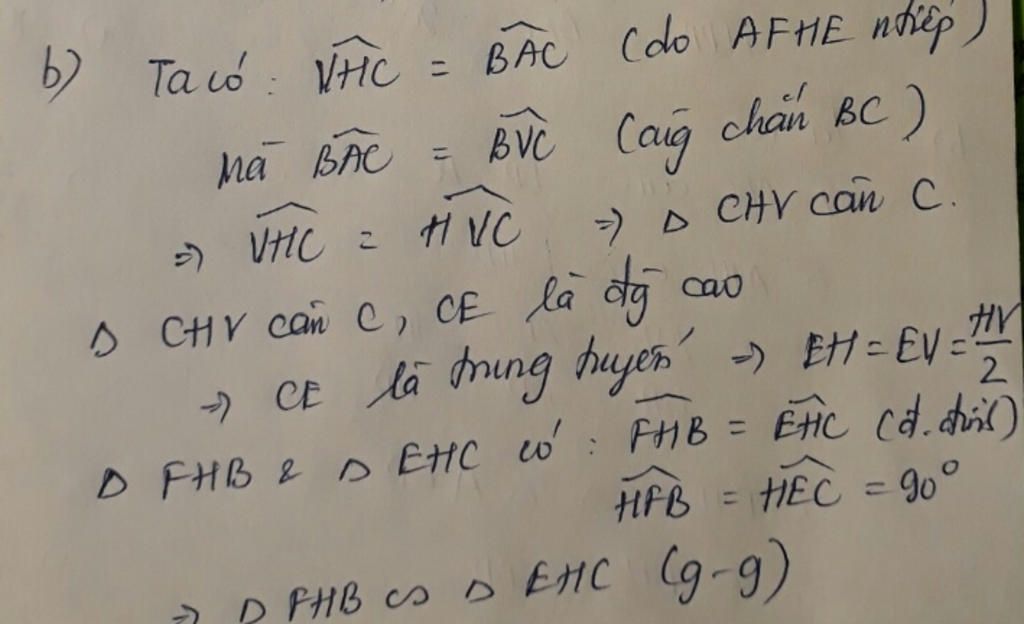 b) Ta có: $\widehat{VHC}$ = $\widehat{BAC}$ (do AFHE ntiếp)
Mà $\widehat{BAC}$ = $\widehat{BVC}$ (cùg chắn BC)
=> $\widehat{VHC}$ = $\widehat{HVC}$ => Δ CHV cân C.
Δ CHV cân C, CE là đg cao
=> CE là trung tuyến => EH = EV = $\frac{HV}{2}$
Δ FHB & Δ EHC có: $\widehat{FHB}$ = $\widehat{EHC}$ (đ. đỉnh)
$\widehat{HFB}$ = $\widehat{HEC}$ = 90°
=> Δ FHB ∽ Δ EHC (g-g)